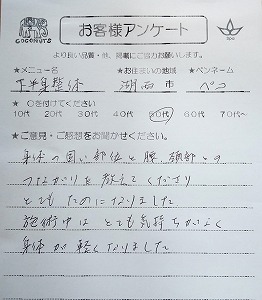 COCONUTS
お客様アンケート
より良い品質・他、掲載にご協力お願いします。
★メニュー名 ★お住まいの地域 ★ペンネーム
下半身整体 湖西市 ペコ
★ ○を付けてください
10代 20代 30代 40代 50代 60代 70代〜
★ご意見・ご感想をお聞かせください。
身体の固い部位と腰、頚部との
つながりを教えてくださり
とてもためになりました
施術中は とても気持ちがよく
身体が軽くなりました